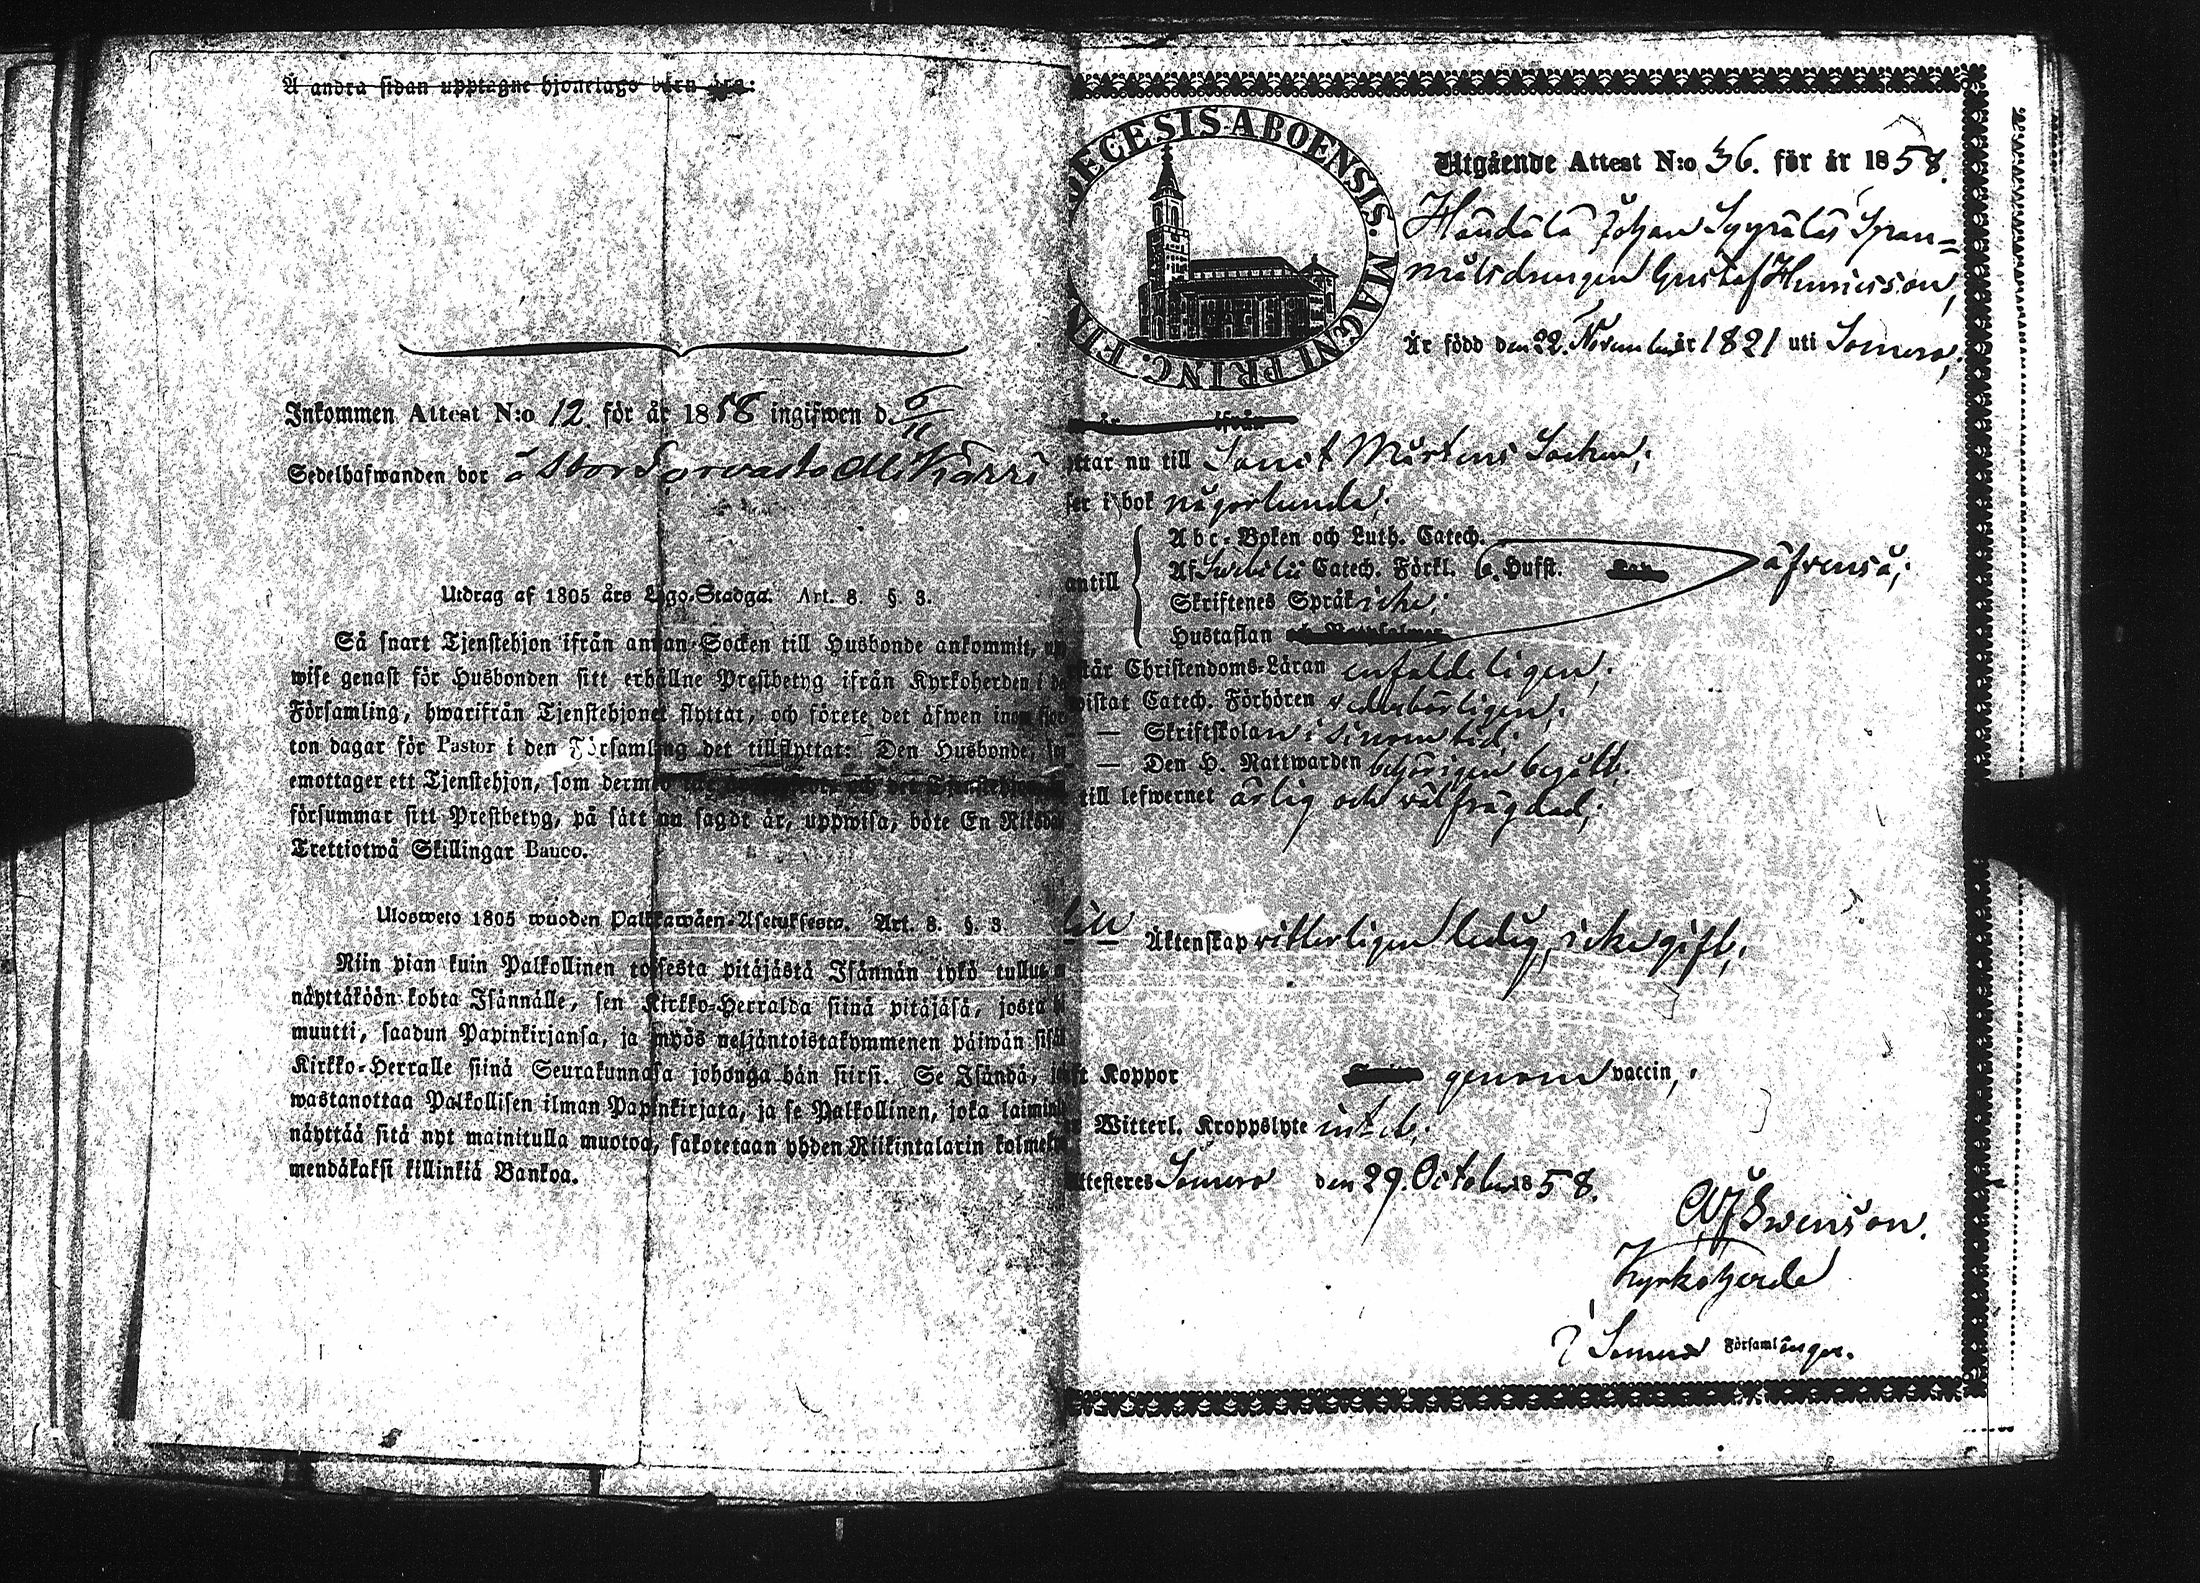 Å andra sidan upptagne hjonelags barn äro:
Inkommen Attest N:o 12. för år 1858 ingifwen d. 6/11
Sedelhafwanden bor å Stor Sorvasto Ali Kärri
Utdrag af 1805 års Lego-Stadga. Art. 8. §. 3.
Så snart Tjenstehjon ifrån annan Socken till Husbonde ankommit,
wise genast för Husbonden sitt erhållne Prestbetyg ifrån Kyrkoherden i
Församling, hwarifrån Tjenstehjonet flyttat, och förete det äfwen inom
ton dagar för Pastor i den Församling det tillflyttat: Den Husbonde,
emottager ett Tjenstehjon, som dermed
försummar sitt Prestbetyg, på sätt nu sagdt är, uppwisa, böte En Riksdal
Trettiotwå Skillingar Banco.
Ulosweto 1805 wuoden Palkkawäen-Asetuksesta. Art. 8. §. 3.
Niin pian kuin Palkollinen toisesta pitäjästä Isännän tykö tullut
näyttäköön kohta Isännälle, sen Kirkko-Herralda siinä pitäjäsä, josta
muutti, saadun Papinkirjansa, ja myös neljäntoistakymmenen päiwän sisäl
Kirkko-Herralle siinä Seurakunnasa johonga hän siirsi. Se Isändä,
wastanottaa Palkollisen ilman Papinkirjata, ja se Palkollinen, joka laimin
näyttää sitä nyt mainitulla muotoa, sakotetaan yhden Riikintalarin kolme
mendäkaksi killinkiä Bankoa.
DECESIS ABOENSIS. MAGNI PRINC. FIN
Utgående Attest N:o 36. för år 1858.
Johan Syyrälä Span=
målsdrengen Gustaf Henricsson,
Är född den 22. November år 1821 uti Somero,
är ifrån
ttar nu till Sanct Mårtens Socken;
ser i bok någorlunda;
Abc-Boken och Luth. Catech.
antill Af Swebilii Catech. Förkl. Hufst. äfvenså;
Skriftenes Språk icke;
Hustaflan
står Christendoms-Läran enfaldeligen;
istat Catech. Förhören vederbörligen;
— Skriftskolan i sinom tid;
— Den H. Nattwarden behörigen begått;
till lefwernet ärlig och välfrägdad;
till Äktenskap vitterligen ledig, icke gift;
ft Koppor genom vaccin,
Witterl. Kroppslyte intet;
ttesteres Somero den 29. October 1858.
Swenson.
Kyrkoherde
i Somero Församlingar.